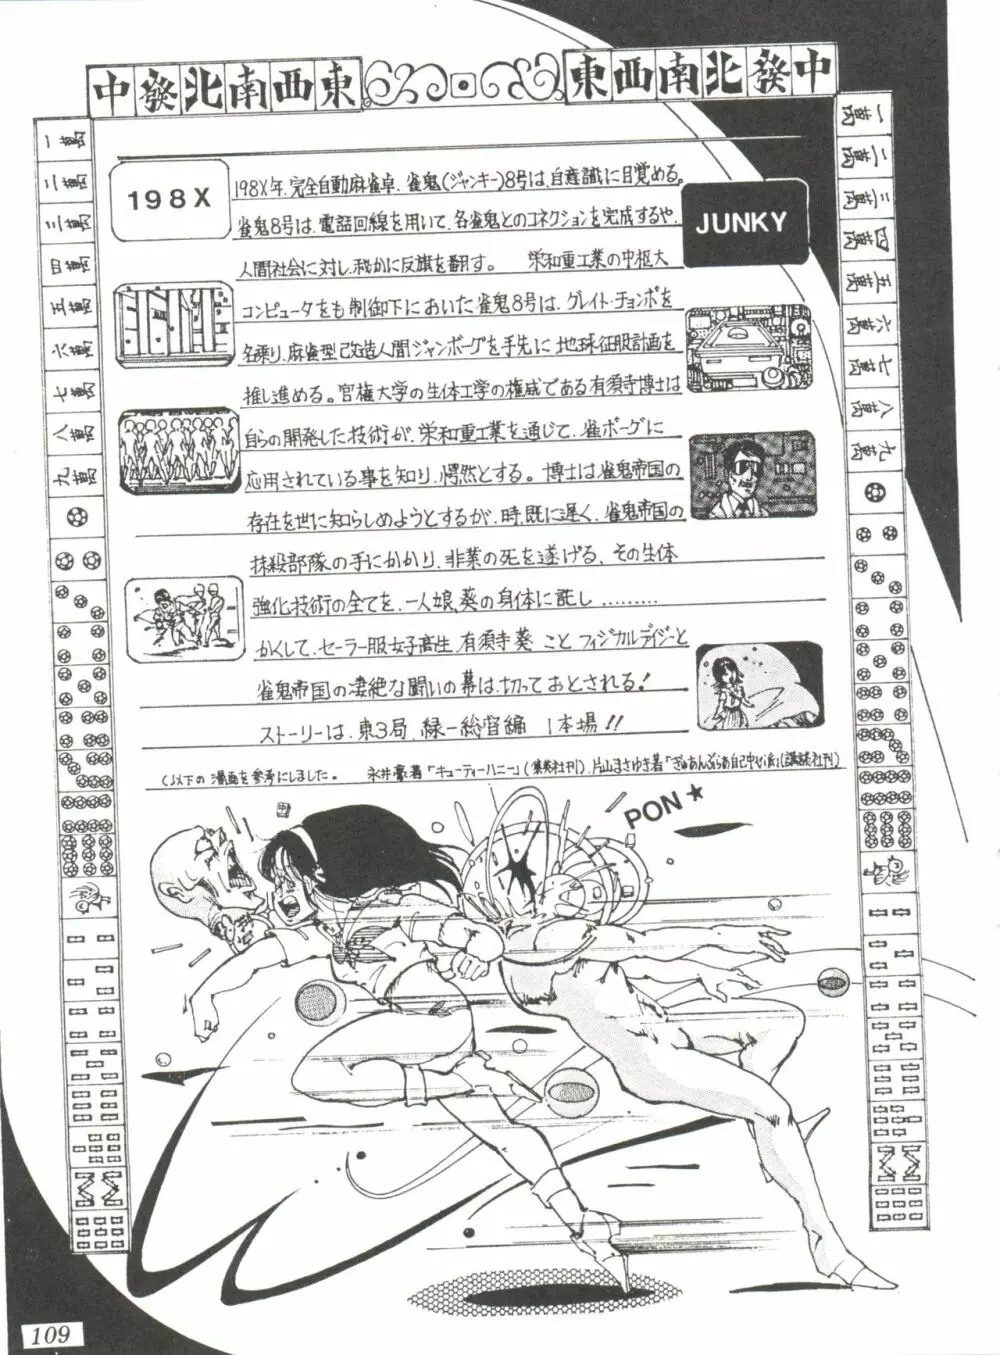 中發北南西東
東西南北發中
198X
JUNKY
198X年、完全自動麻雀卓、雀鬼(ジャンキー)8号は、自意識に目覚める。
雀鬼8号は、電話回線を用いて、各雀鬼とのコネクションを完成するや、
人間社会に対し、秘かに反旗を翻す。 栄和重工業の中枢大
コンピュータをも制御下においた雀鬼8号は、グレイト・チョンボを
名乗り、麻雀型改造人間ジャンボーグを手先に地球征服計画を
推し進める。官権大学の生体工学の権威である有須寺博士は
自らの開発した技術が、栄和重工業を通じて、雀ボーグに
応用されている事を知り、愕然とする。博士は、雀鬼帝国の
存在を世に知らしめようとするが、時、既に遅く、雀鬼帝国の
抹殺部隊の手にかかり、非業の死を遂げる、その生体
強化技術の全てを、一人娘、葵の身体に託し………
かくして、セーラー服女子高生、有須寺葵 こと フィジカルデイジーと
雀鬼帝国の凄絶な闘いの幕は、切っておとされる!
ストーリーは、東3局、緑一総督編 1本場!!
(以下の漫画を参考にしました。 永井豪著「キューティーハニー」(集英社刊)、片山まさゆき著「ぎゅあんぶらあ自己中心派」(講談社刊)
PON★
一萬
二萬
三萬
四萬
五萬
六萬
七萬
八萬
九萬
一萬
二萬
三萬
四萬
五萬
六萬
七萬
八萬
九萬
中
109